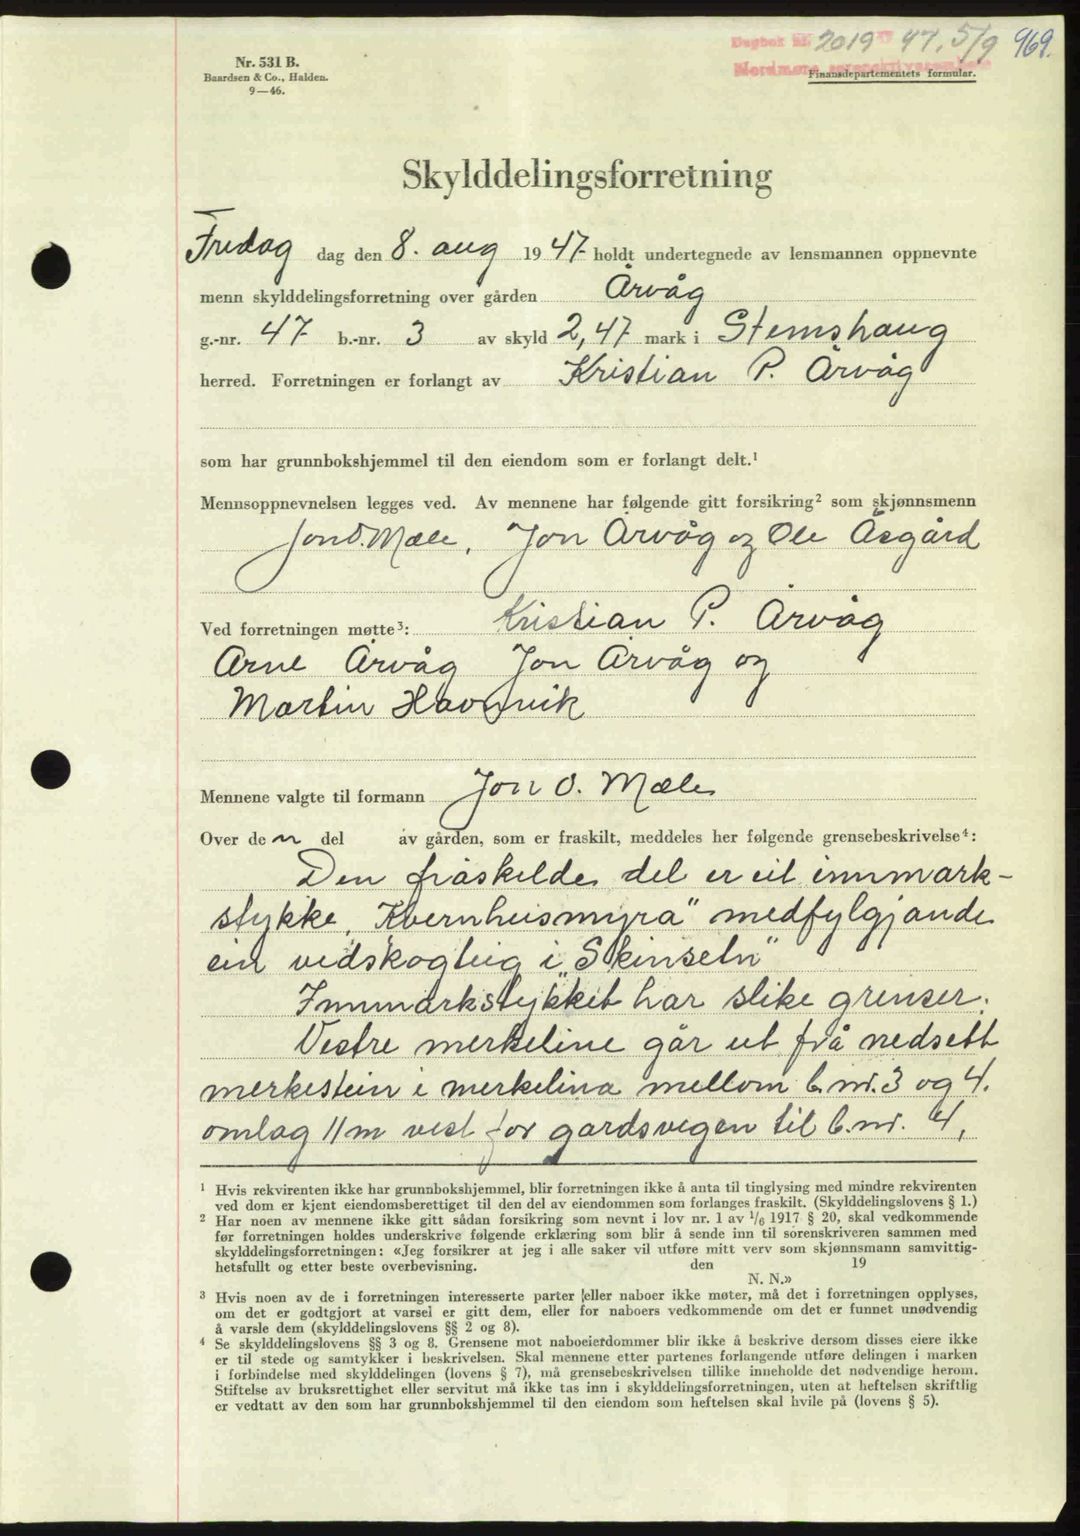 Nr. 531 B.
Baardsen & Co., Halden.
9—46.
Dagbok nr. 2019 47. 5/9 969.
Nordmøre sorenskriverembete
Finansdepartementets formular.
Skylddelingsforretning
Fredag dag den 8. aug 1947 holdt undertegnede av lensmannen oppnevnte
menn skylddelingsforretning over gården Årvåg
g.-nr. 47 b.-nr. 3 av skyld 2,47 mark i Stemshaug
herred. Forretningen er forlangt av Kristian P. Årvåg
som har grunnbokshjemmel til den eiendom som er forlangt delt.¹
Mennsoppnevnelsen legges ved. Av mennene har følgende gitt forsikring² som skjønnsmenn
Jon O. Mæle, Jon Årvåg og Ole Åsgård
Ved forretningen møtte³: Kristian P. Årvåg
Arne Årvåg Jon Årvåg og
Martin Havnvik
Mennene valgte til formann Jon O. Mæle
Over de n del av gården, som er fraskilt, meddeles her følgende grensebeskrivelse⁴:
Den fråskilde del er eit innmark-
stykke, "Kvernhusmyra" medfylgjande
ein vedskogteig i "Skinsetn"
Innmarkstykket har slike grenser:
Vestre merkeline går ut frå nedsett
merkestein i merkelina mellom b.nr. 3 og 4.
omlag 11 m vest for gardsvegen til b.nr. 4,
¹ Hvis rekvirenten ikke har grunnbokshjemmel, blir forretningen ikke å anta til tinglysing med mindre rekvirenten
ved dom er kjent eiendomsberettiget til den del av eiendommen som forlanges fraskilt. (Skylddelingslovens § 1.)
² Har noen av mennene ikke gitt sådan forsikring som nevnt i lov nr. 1 av 1/6 1917 § 20, skal vedkommende
før forretningen holdes underskrive følgende erklæring som blir å sende inn til sorenskriveren sammen med
skylddelingsforretningen: «Jeg forsikrer at jeg i alle saker vil utføre mitt verv som skjønnsmann samvittig-
hetsfullt og etter beste overbevisning. den 19
N. N.»
³ Hvis noen av de i forretningen interesserte parter eller naboer ikke møter, må det i forretningen opplyses,
om det er godtgjort at varsel er gitt dem, eller for naboers vedkommende om det er funnet unødvendig
å varsle dem (skylddelingslovens §§ 2 og 8).
⁴ Se skylddelingslovens §§ 3 og 8. Grensene mot naboeiendommer blir ikke å beskrive dersom disses eiere ikke
er til stede og samtykker i beskrivelsen. Skal mennene etter partenes forlangende utføre delingen i marken
i forbindelse med skylddelingen (lovens § 7), må grensebeskrivelsen tillike inneholde det nødvendige herom.
Stiftelse av bruksrettighet eller servitut må ikke tas inn i skylddelingsforretningen, uten at heftelsen skriftlig
er vedtatt av den som har grunnbokshjemmel til den eiendom som heftelsen skal hvile på (lovens § 5).